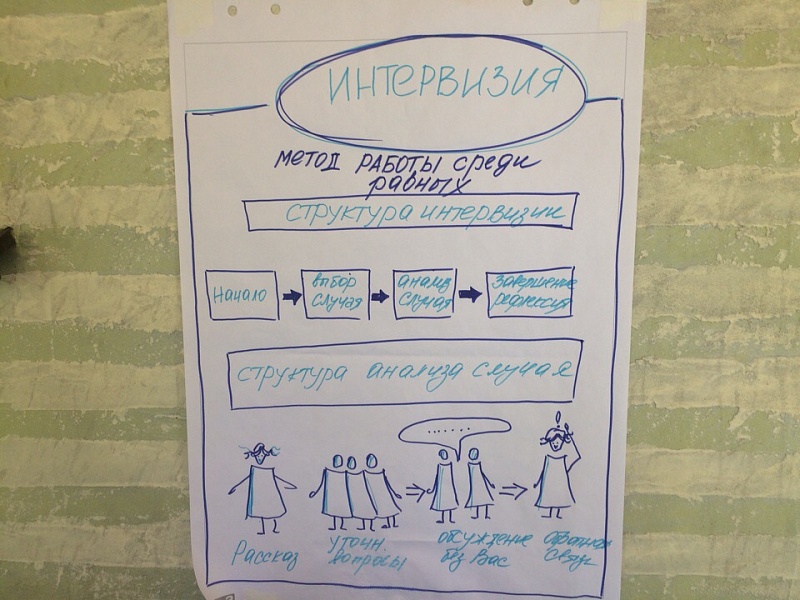 ИНТЕРВИЗИЯ
метод РАБОТЫ среди
равных
СТРУКТУРА ИНТЕРВИЗИИ
Начало
выбор
случая
анализ
случая
Завершение
рефлексия
СТРУКТУРА анализа случая
......
Рассказ
уточн.
вопросы
обсуждение
без Вас
Обратная
связь